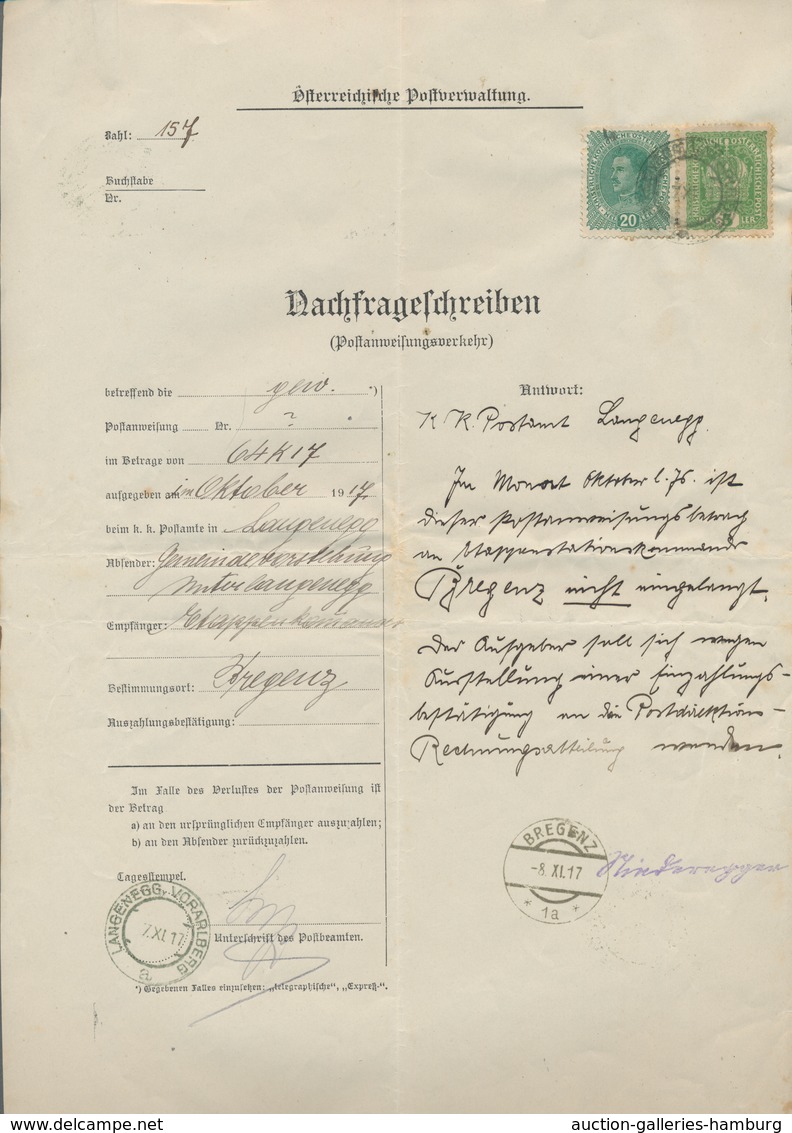 Österreichische Postverwaltung.
Zahl: 157
Buchstabe
Nr.
20
Nachfrageschreiben
(Postanweisungsverkehr)
betreffend die gew. *)
Postanweisung Nr. ?
im Betrage von 64 K 17
aufgegeben am im Oktober 1917
beim k. k. Postamte in Langenegg
Absender: Gemeindevorstehung
Unterlangenegg
Empfänger: Etappenkommando
Bestimmungsort: Bregenz
Auszahlungsbestätigung:
Im Falle des Verlustes der Postanweisung ist
der Betrag
a) an den ursprünglichen Empfänger auszuzahlen;
b) an den Absender zurückzuzahlen.
Tagesstempel.
LANGENEGG, VORARLBERG
7.XI.17
a
Unterschrift des Postbeamten.
*) Gegebenen Falles einzusetzen: „telegraphische“, „Expreß-“.
Antwort:
K. K. Postamt Langenegg.
Im Monat Oktober l. Js. ist
dieser Postanweisungsbetrag
an Etappenstationskommando
Bregenz nicht eingelangt.
Der Aufgeber soll sich wegen
Ausstellung einer Einzahlungs-
bestätigung an die Postdirektions-
Rechnungsabteilung wenden.
BREGENZ
-8.XI.17
* 1a *
Niederegger
auction-galleries-hamburg